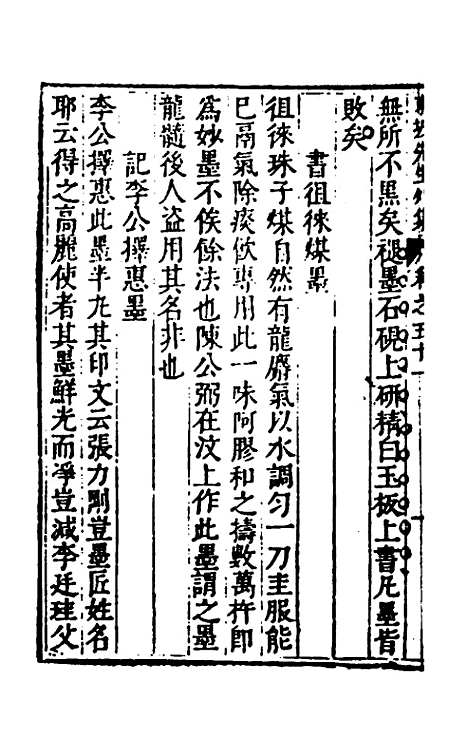 無所不黑矣褪墨石硯上研精白玉板上書凡墨皆
敗矣
書徂徠煤墨
徂徠珠子煤自然有龍麝氣以水調勻一刀圭服能
已鬲氣除痰飲專用此一味阿膠和之擣數萬杵即
為妙墨不俟餘法也陳公弼在汶上作此墨謂之墨
龍髓後人盜用其名非也
記李公擇惠墨
李公擇惠此墨半丸其印文云張力剛豈墨匠姓名
耶云得之高麗使者其墨鮮光而淨豈減李廷珪父